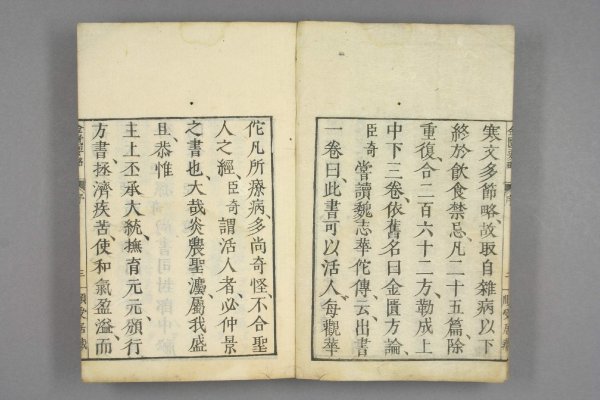 寒文多節略故取自雜病以下
終於飲食禁忌凡二十五篇除
重復合二百六十二方勒成上
中下三卷依舊名曰金匱方論
臣奇嘗讀魏志華佗傳云出書
一卷曰此書可以活人每觀華
佗凡所療病多尚奇怪不合聖
人之經臣奇謂活人者必仲景
之書也大哉炎農聖灋屬我盛
旦恭惟
主上丕承大統撫育元元頒行
方書拯濟疾苦使和氣盈溢而